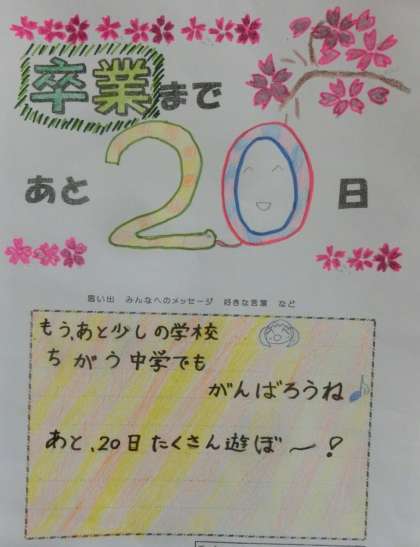 卒業まで
あと20日
思い出 みんなへのメッセージ 好きな言葉 など
もう、あと少しの学校
ちがう中学でも
がんばろうね
あと、20日たくさん遊ぼ〜!